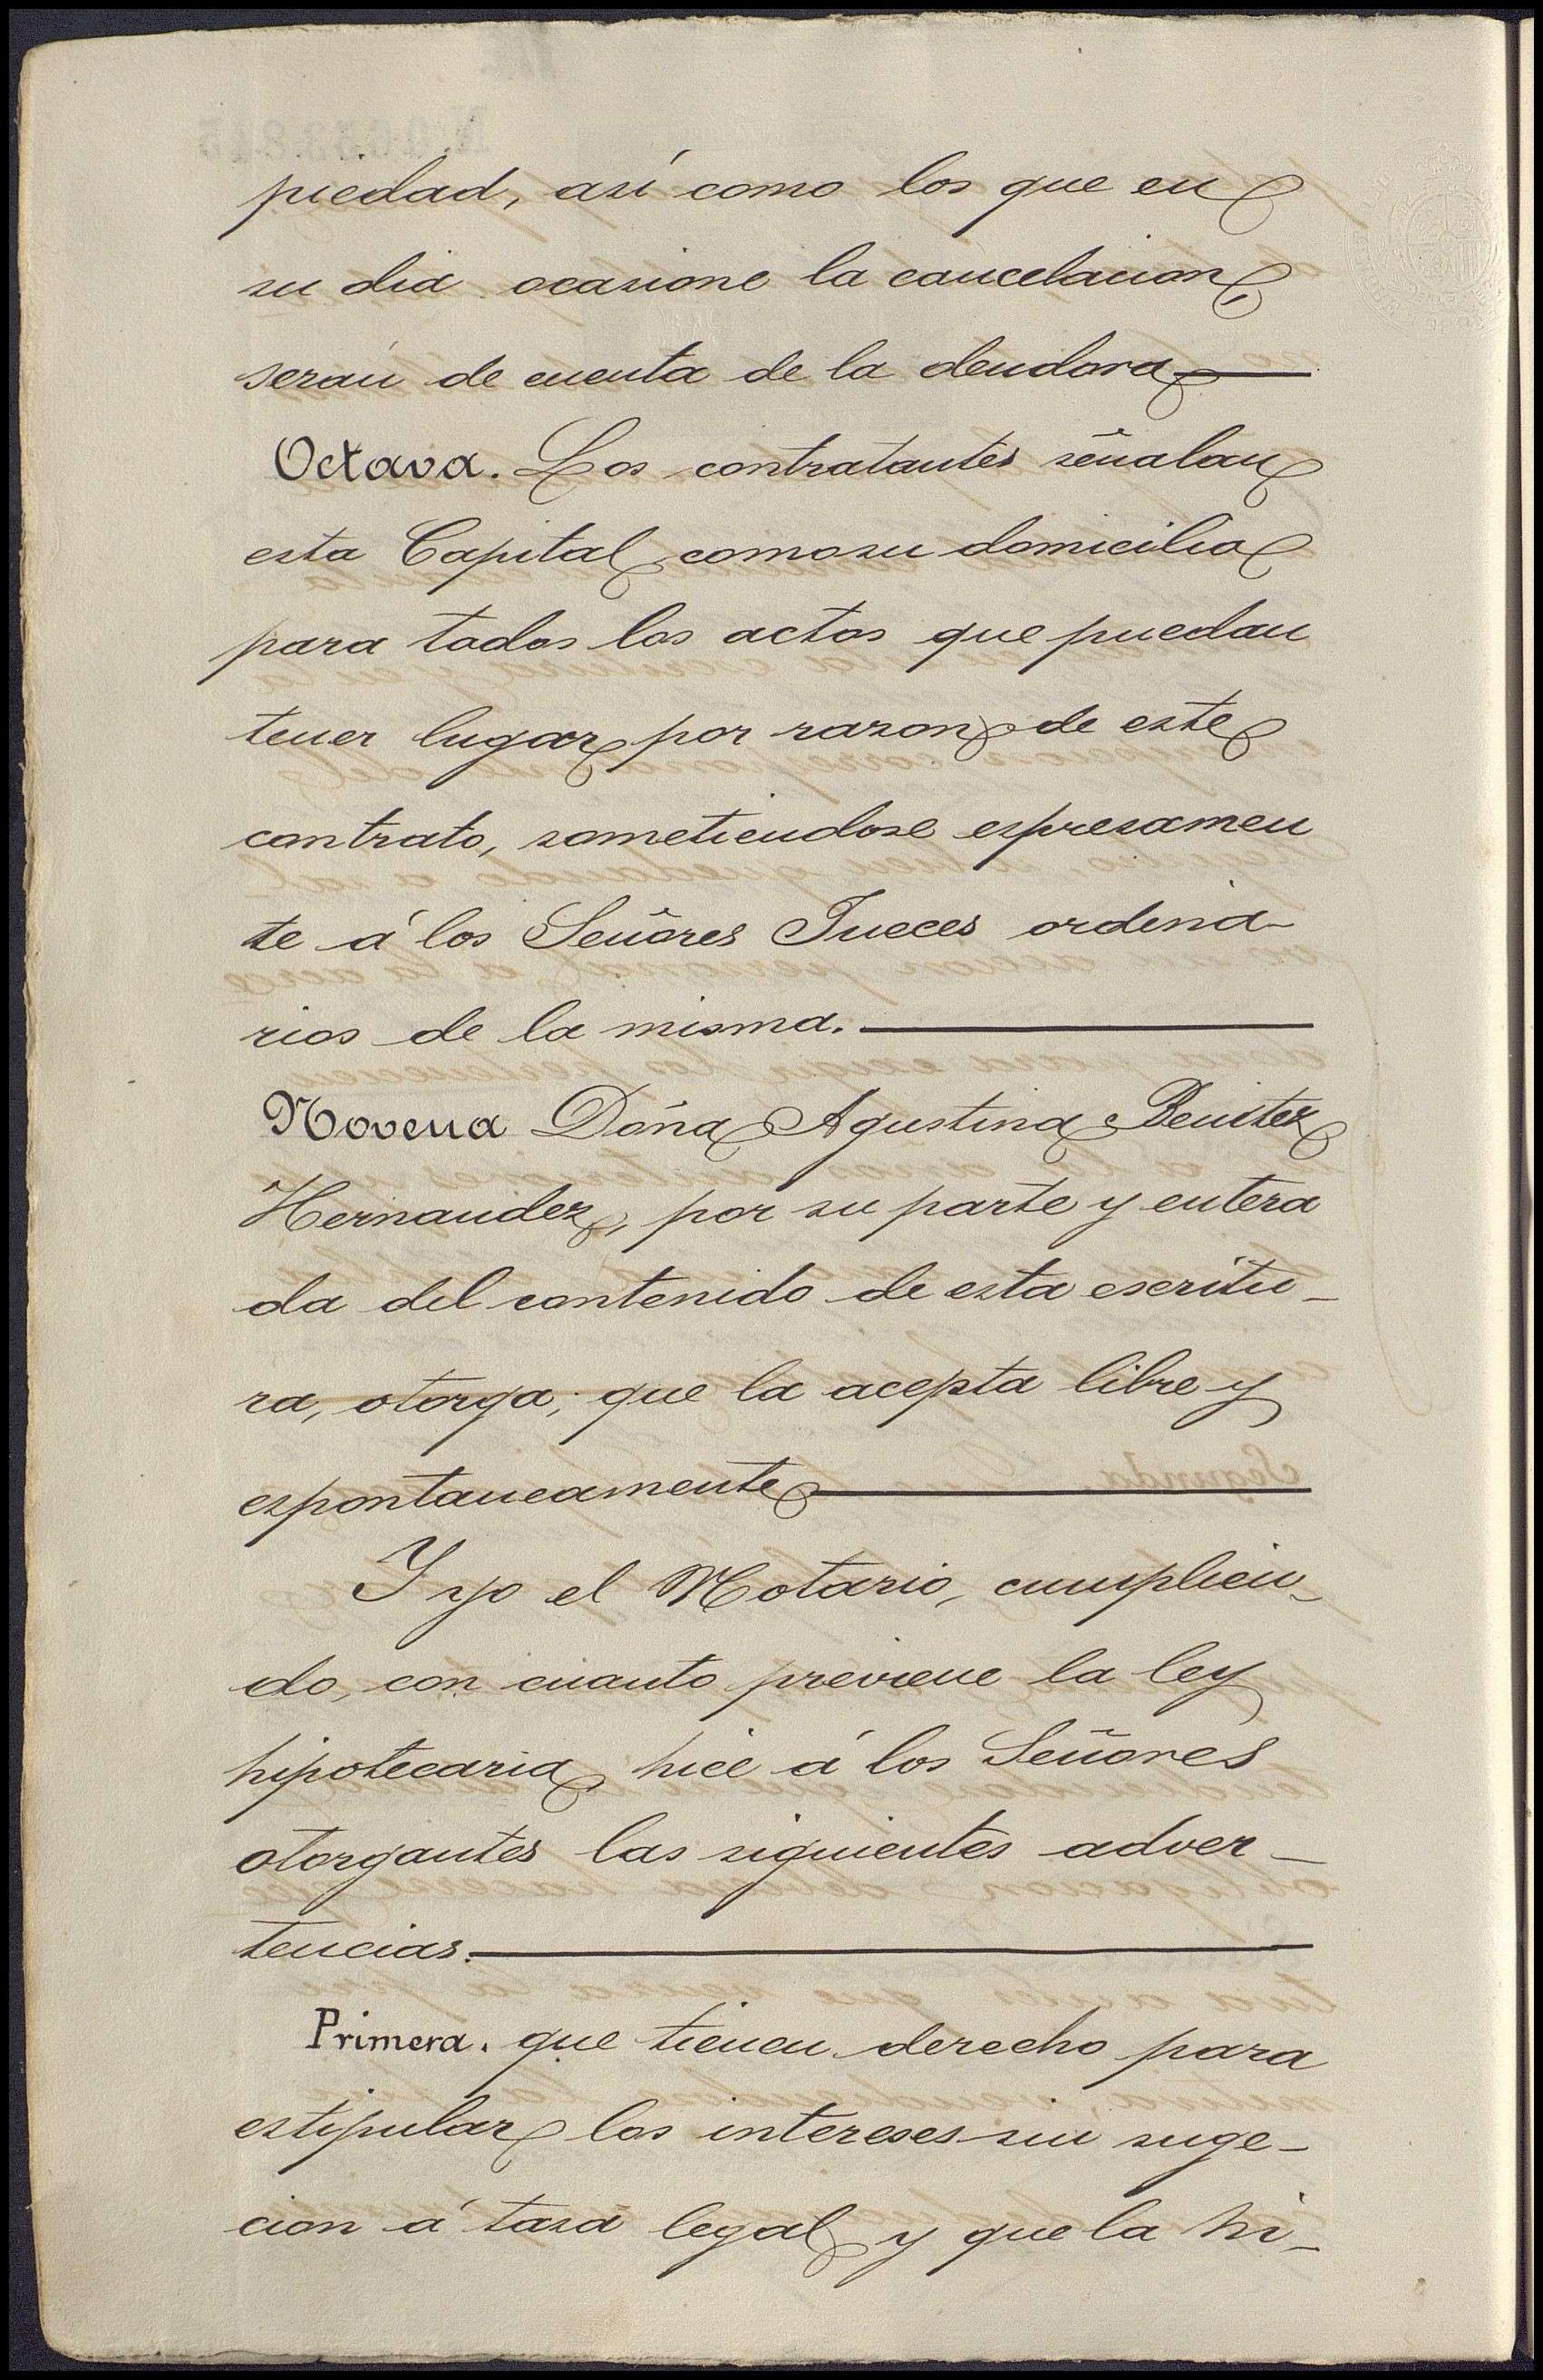 piedad, así como los que en
su dia ocasione la cancelacion,
serán de cuenta de la deudora
Octava. Los contratantes señalan
esta Capital como su domicilio
para todos los actos que puedan
tener lugar por razon de este
contrato, sometiendose espresamen
te á los Señores Jueces ordina-
rios de la misma.
Novena Doña Agustina Benitez
Hernandez, por su parte y entera
da del contenido de esta escritu-
ra, otorga; que la acepta libre y
espontaneamente
Y yo el Notario, cumplien-
do, con cuanto previene la ley
hipotecaria, hice á los Señores
otorgantes las siguientes adver-
tencias.
Primera. que tienen derecho para
estipular los intereses sin suge-
cion á tasa legal y que la hi-